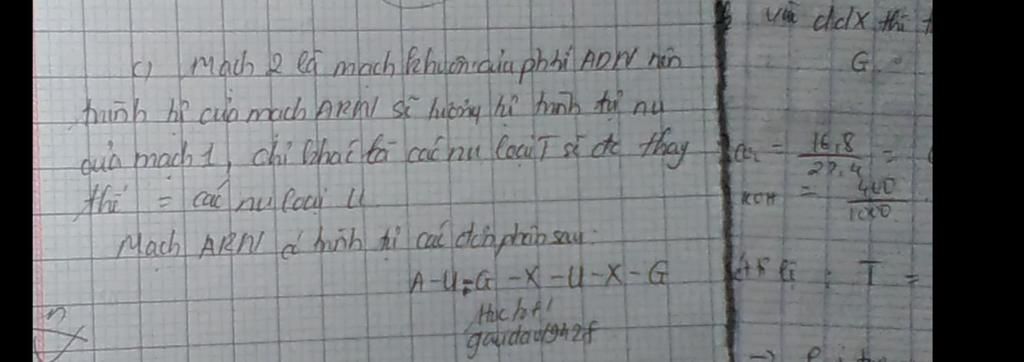 c) Mạch 2 là mạch khuôn của phtử ADN nên
trình tự của mạch ARN sẽ tương tự trình tự nu
của mạch 1, chỉ khác là các nu loại T sẽ đc thay
thế = các nu loại U
Mạch ARN có trình tự các đơn phân sau:
A-U-G-X-U-X-G
Học tốt!
gaudau1942f
và ddX thì
G
= 16,8 / 22,4 =
KOH = 400 / 1000
T =